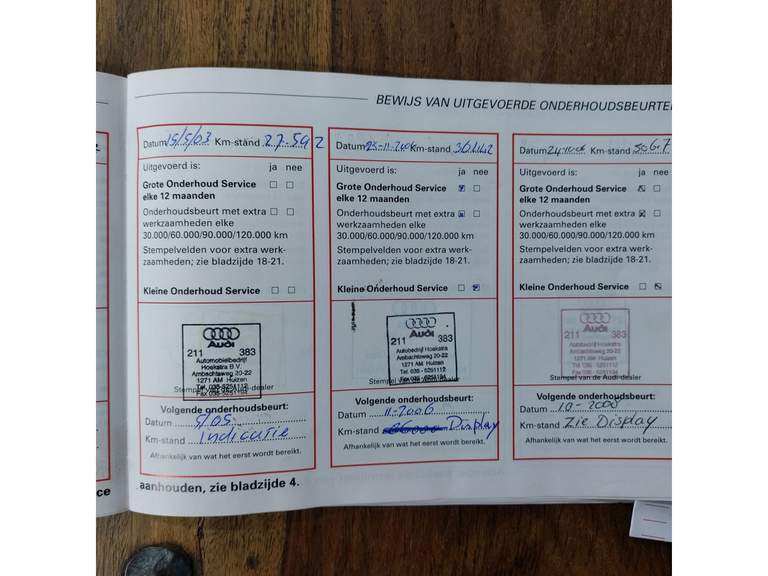 BEWIJS VAN UITGEVOERDE ONDERHOUDSBEURTE
Datum 15/5/03 Km-stand 27.592
Uitgevoerd is: ja nee
Grote Onderhoud Service
elke 12 maanden
Onderhoudsbeurt met extra
werkzaamheden elke
30.000/60.000/90.000/120.000 km
Stempelvelden voor extra werk-
zaamheden; zie bladzijde 18-21.
Kleine Onderhoud Service
Audi
211 383
Automobielbedrijf
Hoekstra B.V.
Ambachtsweg 20-22
1271 AM Huizen
Tel. 035-5251112
Fax 035-5251194
Stempel van de Audi-dealer
Volgende onderhoudsbeurt:
Datum 5/05
Km-stand Indicatie
Afhankelijk van wat het eerst wordt bereikt.
Datum Km-stand
Uitgevoerd is: ja nee
Grote Onderhoud Service
elke 12 maanden
Onderhoudsbeurt met extra
werkzaamheden elke
30.000/60.000/90.000/120.000 km
Stempelvelden voor extra werk-
zaamheden; zie bladzijde 18-21.
Kleine Onderhoud Service
Audi
211 383
Autobedrijf Hoekstra
Ambachtsweg 20-22
1271 AM Huizen
Tel. 035 - 5251112
Fax 035 - 5251194
Volgende onderhoudsbeurt:
Datum 11-2006
Km-stand Display
Afhankelijk van wat het eerst wordt bereikt.
Datum Km-stand
Uitgevoerd is: ja nee
Grote Onderhoud Service
elke 12 maanden
Onderhoudsbeurt met extra
werkzaamheden elke
30.000/60.000/90.000/120.000 km
Stempelvelden voor extra werk-
zaamheden; zie bladzijde 18-21.
Kleine Onderhoud Service
Audi
211 383
Autobedrijf Hoekstra
Ambachtsweg 20-22
1271 AM Huizen
Stempel van de Audi-dealer
Volgende onderhoudsbeurt:
Datum 10-2008
Km-stand Zie Display
Afhankelijk van wat het eerst wordt bereikt.
aanhouden, zie bladzijde 4.
ce